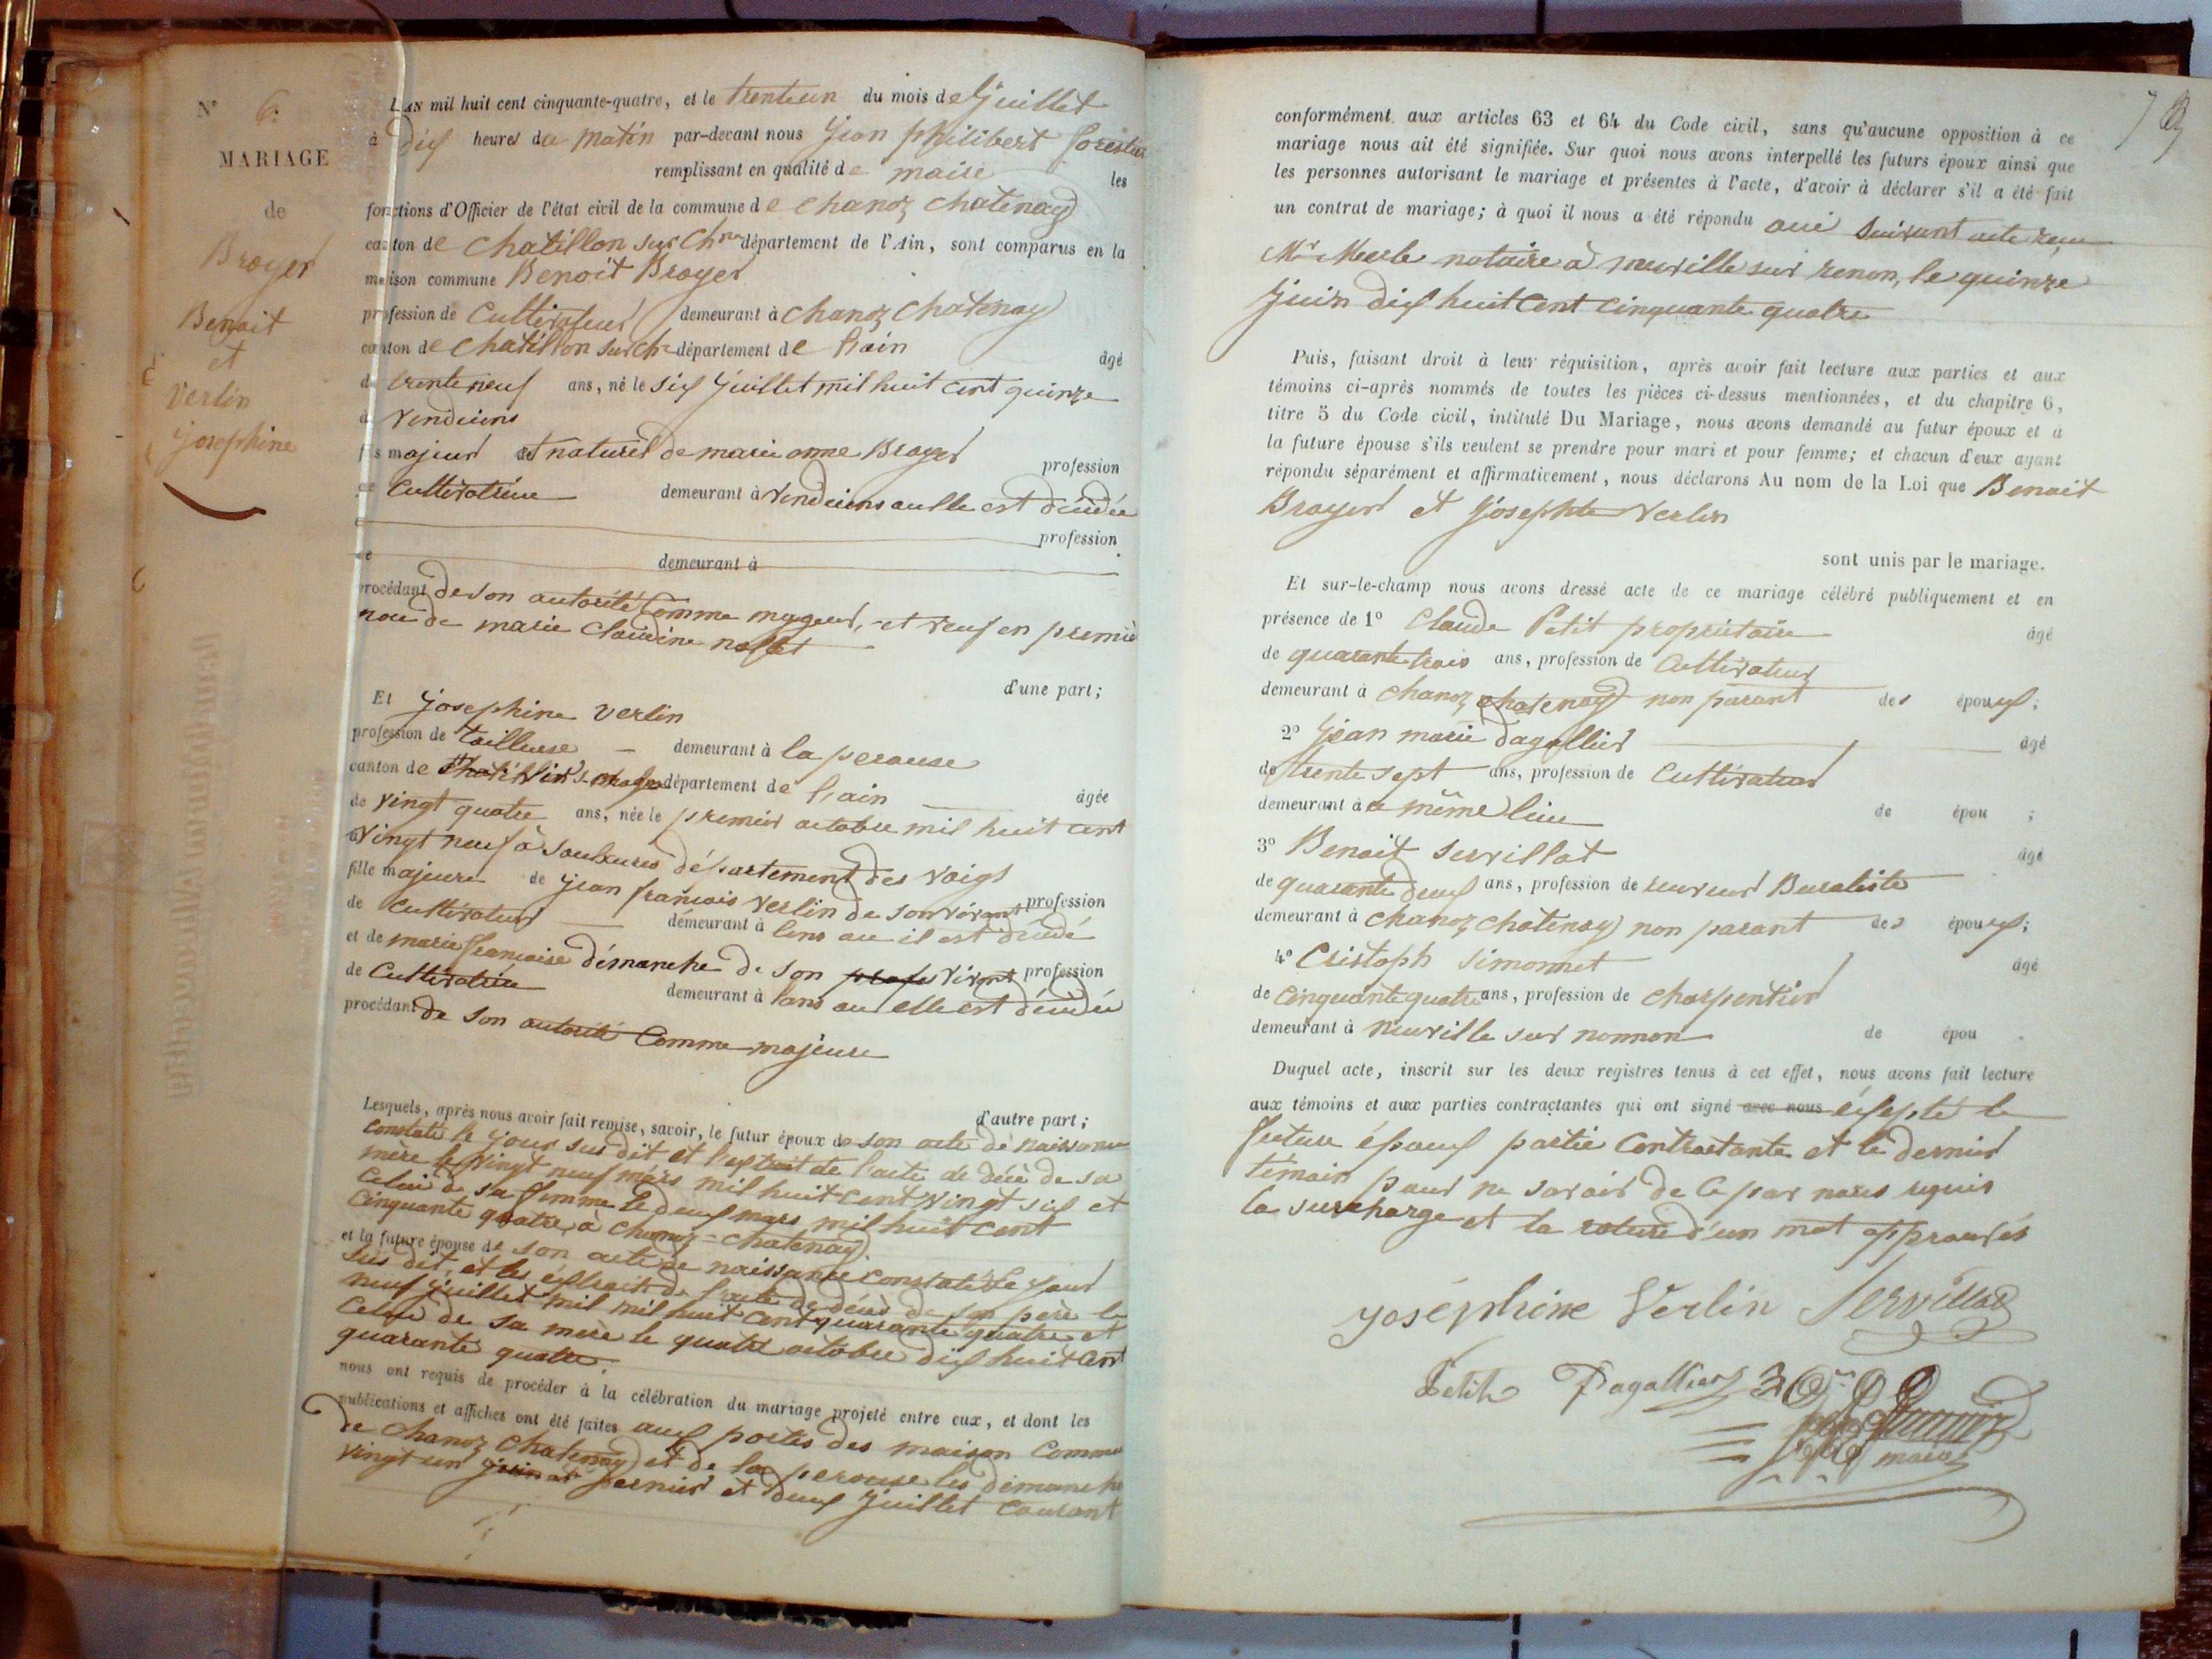 N° 6.
MARIAGE
de
Broyer
Benoit
et
Verlin
josephine
L'AN mil huit cent cinquante-quatre, et le trenteun du mois de Juillet
à dix heures du matin par-devant nous Jean philibert
remplissant en qualité de maire les
fonctions d'Officier de l'état civil de la commune de chanoz chatenay
canton de chatillon sur Chne département de l'Ain, sont comparus en la
maison commune Benoit Broyer
profession de Cultivateur demeurant à chanoz chatenay
canton de chatillon sur ch département de l'ain âgé
de trente neuf ans, né le six juillet mil huit cent quinze
à Vendeins
fils majeur et naturel de marie anne Broyer profession
de Cultivatrice demeurant à vendeins ou elle est décédée
profession
de demeurant à
procédant de son autorité Comme majeur, et veuf en premie
noce de marie Claudine
d'une part;
Et josephine verlin
profession de tailleuse demeurant à la perouse
canton de département de l'ain âgée
de vingt quatre ans, née le premier octobre mil huit cent
vingt neuf à Saulxures département des Voigs
fille majeure de jean francois verlin de son vivant profession
de Cultivateur demeurant à lens ou il est décédé
et de marie francoise démanche de son vivant profession
de Cultivatrice demeurant à lens ou elle est décédée
procédant de son autorité Comme majeure
d'autre part;
Lesquels, après nous avoir fait remise, savoir, le futur époux de son acte de naissance
constaté le jour sus dit et l'extrait de l'acte de décè de sa
mère le vingt neuf mars mil huit cent vingt six et
Celui de sa femme le deux mars mil huit cent
Cinquante quatre, à chanoz-chatenay.
et la future épouse de son acte de naissance constaté le jour
sus dit, et les extrait de l'acte de décès de son père le
neuf juillet mil mil huit cent quarante quatre et
Celui de sa mère le quatre octobre dix huit cent
quarante quatre.
nous ont requis de procéder à la célébration du mariage projeté entre eux, et dont les
publications et affiches ont été faites aux portes des maison Commune
de chanoz chatenay et de la perouse les dimanche
vingt un juin dernier et deux juillet Courant
conformément aux articles 63 et 64 du Code civil, sans qu'aucune opposition à ce
mariage nous ait été signifiée. Sur quoi nous avons interpellé les futurs époux ainsi que
les personnes autorisant le mariage et présentes à l'acte, d'avoir à déclarer s'il a été fait
un contrat de mariage; à quoi il nous a été répondu oui suivant acte reçu
Mr Merle notaire à neuville sur renon, le quinze
juin dix huit cent cinquante quatre
Puis, faisant droit à leur réquisition, après avoir fait lecture aux parties et aux
témoins ci-après nommés de toutes les pièces ci-dessus mentionnées, et du chapitre 6,
titre 5 du Code civil, intitulé Du Mariage, nous avons demandé au futur époux et à
la future épouse s'ils veulent se prendre pour mari et pour femme; et chacun d'eux ayant
répondu séparément et affirmativement, nous déclarons Au nom de la Loi que Benoit
Broyer et josephte verlin
sont unis par le mariage.
Et sur-le-champ nous avons dressé acte de ce mariage célébré publiquement et en
présence de 1° Claude Petit propriétaire âgé
de quarante trois ans, profession de Cultivateur
demeurant à chanoz chatenay non parant des époux;
2° Jean marie Dagallier âgé
de trente sept ans, profession de Cultivateur
demeurant à même lieu de épou ;
3° Benoit servillat âgé
de quarante deux ans, profession de receveur Buraliste
demeurant à chanoz chatenay non parant des époux;
4° Cristoph simonnet âgé
de Cinquante quatre ans, profession de charpentier
demeurant à neuville sur nonnon de épou .
Duquel acte, inscrit sur les deux registres tenus à cet effet, nous avons fait lecture
aux témoins et aux parties contractantes qui ont signé avec nous éxsepté le
future époux partie Contractante et le dernier
témoin pour ne savoir de Ce par nous requis
la surcharge et la rature d'un mot approuvés
joséphine Verlin Servillat
Petit Dagallier
maire